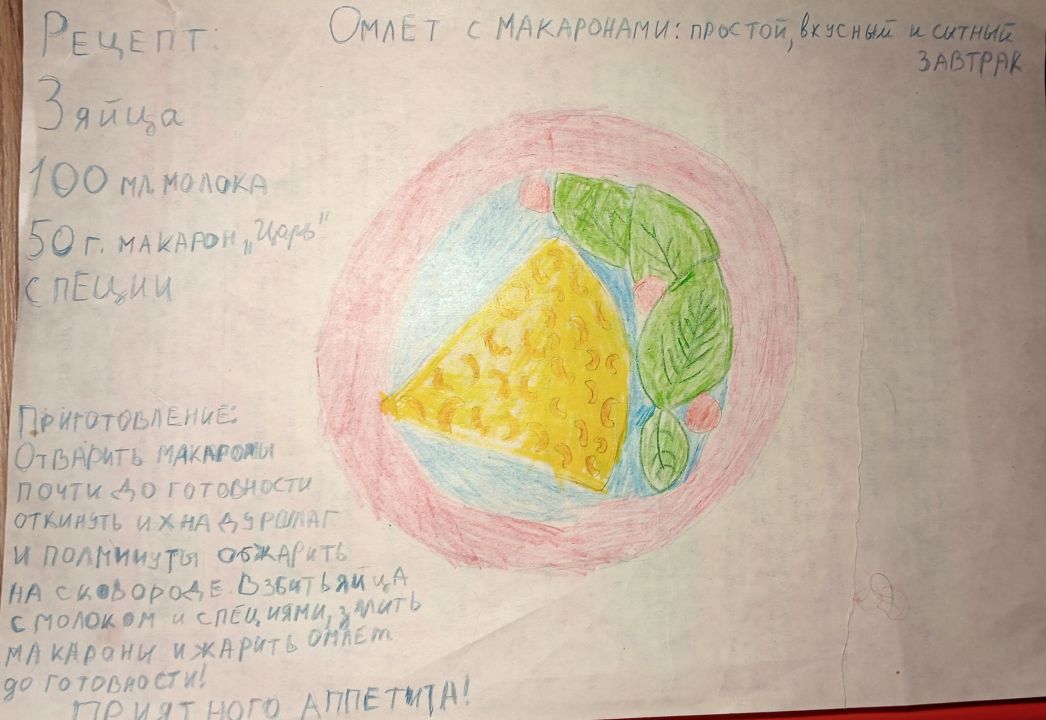 Омлет с макаронами: простой, вкусный и ситный
завтрак
Рецепт:
3 яйца
100 мл. молока
50 г. макарон „Царь"
специи
Приготовление:
Отварить макароны
почти до готовности
откинуть их на дуршлаг
и полминуты обжарить
на сковороде. Взбить яйца
с молоком и специями, залить
макароны и жарить омлет
до готовности!
Приятного аппетита!